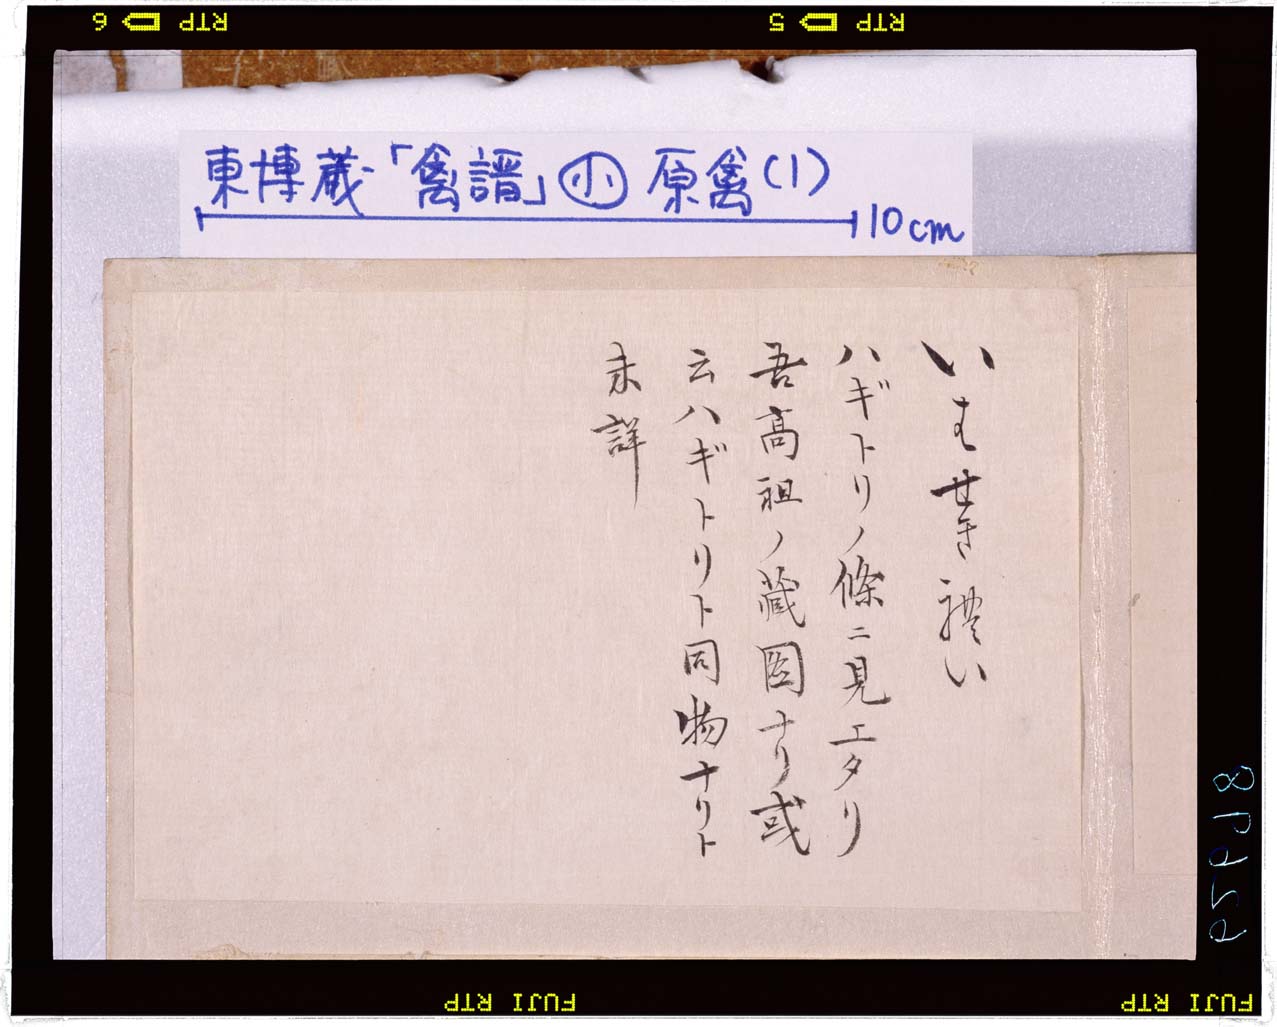 RTP 6
RTP 5
東博蔵「禽譜」小 原禽(1)
10cm
いもせき禮い
ハギトリノ條ニ見エタリ
吾高祖ノ藏圖ナリ或
云ハギトリト同物ナリト
未詳
FUJI RTP
FUJI RTP